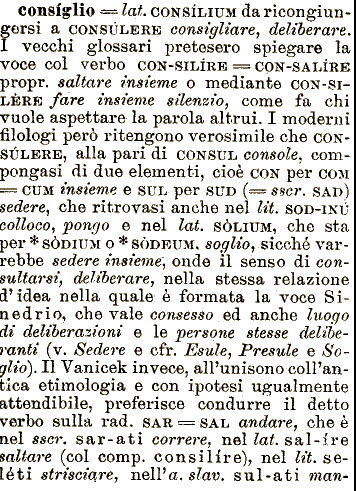 consíglio = lat. CONSÍLIUM da ricongiun-
gersi a CONSÚLERE consigliare, deliberare.
I vecchi glossari pretesero spiegare la
voce col verbo CON-SILÍRE = CON-SALÍRE
propr. saltare insieme o mediante CON-SI-
LÈRE fare insieme silenzio, come fa chi
vuole aspettare la parola altrui. I moderni
filologi però ritengono verosimile che CON-
SÚLERE, alla pari di CONSUL console, com-
pongasi di due elementi, cioè CON per COM
= CUM insieme e SUL per SUD (= sscr. SAD)
sedere, che ritrovasi anche nel lit. SOD-INÙ
colloco, pongo e nel lat. SÒLIUM, che sta
per * SÒDIUM o * SÒDEUM, soglio, sicché var-
rebbe sedere insieme, onde il senso di con-
sultarsi, deliberare, nella stessa relazione
d'idea nella quale è formata la voce Si-
nedrio, che vale consesso ed anche luogo
di deliberazioni e le persone stesse delibe-
ranti (v. Sedere e cfr. Esule, Presule e So-
glio). Il Vanicek invece, all'unisono coll'an-
tica etimologia e con ipotesi ugualmente
attendibile, preferisce condurre il detto
verbo sulla rad. SAR = SAL andare, che è
nel sscr. sar-ati correre, nel lat. sal-íre
saltare (col comp. consilíre), nel lit. se-
léti strisciare, nell'a. slav. sul-ati man-